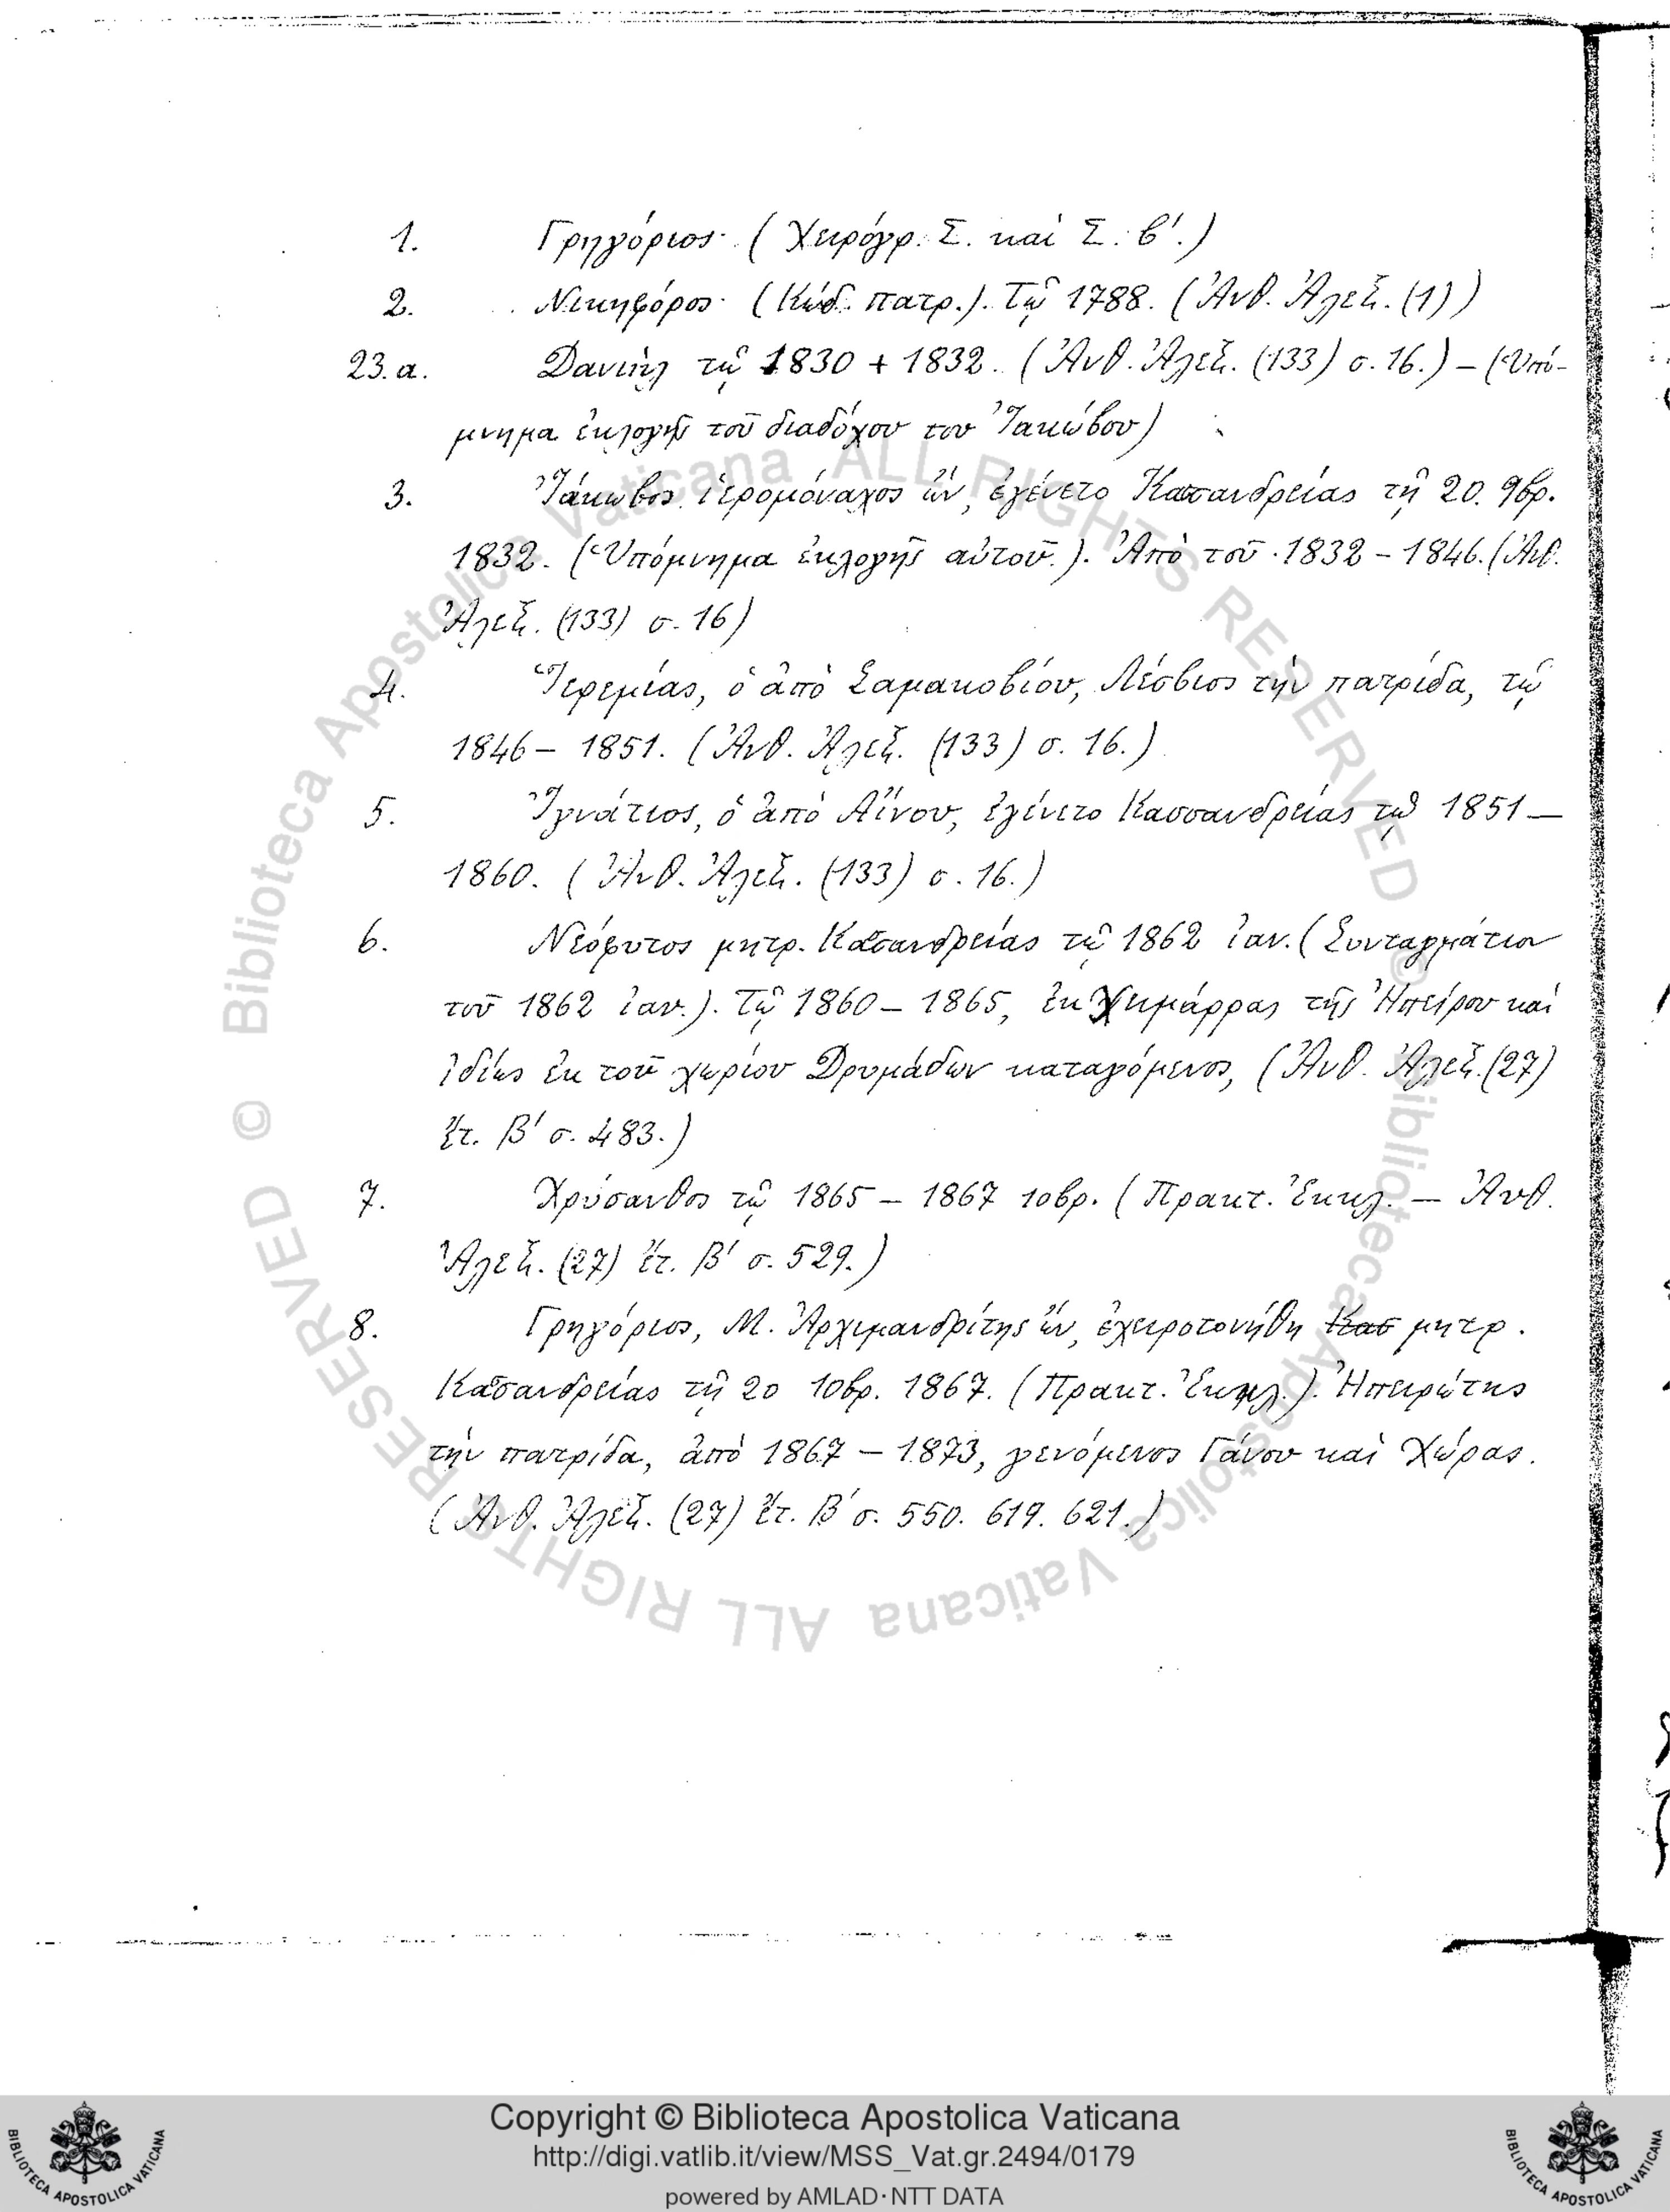 1. Γρηγόριος (Χειρόγρ. Σ. καὶ Σ. β'.)
2. Νικηφόρος (Κώδ. πατρ.). Τῷ 1788. (Ἀνθ. Ἀλεξ. (1))
23.α. Δανιὴλ τῷ 1830 + 1832. (Ἀνθ. Ἀλεξ. (133) σ. 16.) – (Ὑπό-
μνημα ἐκλογῆς τοῦ διαδόχου του Ἰακώβου)
3. Ἰάκωβος ἱερομόναχος ὤν, ἐγένετο Κασανδρείας τῇ 20. 9βρ.
1832. (Ὑπόμνημα ἐκλογῆς αὐτοῦ.). Ἀπὸ τοῦ 1832 – 1846. (Ἀνθ.
Ἀλεξ. (133) σ. 16)
4. Ἱερεμίας, ὁ ἀπὸ Σαμακοβίου, Λέσβιος τὴν πατρίδα, τῷ
1846 – 1851. (Ἀνθ. Ἀλεξ. (133) σ. 16.)
5. Ἰγνάτιος, ὁ ἀπὸ Αἴνου, ἐγένετο Κασσανδρείας τῷ 1851 –
1860. (Ἀνθ. Ἀλεξ. (133) σ. 16.)
6. Νεόφυτος μητρ. Κασανδρείας τῷ 1862 ἰαν. (Συνταγμάτιον
τοῦ 1862 ἰαν.). Τῷ 1860 – 1865, ἐκ Χιμάρρας τῆς Ἠπείρου καὶ
ἰδίως ἐκ τοῦ χωρίου Δρυμάδων καταγόμενος, (Ἀνθ. Ἀλεξ. (27)
ἔτ. Β' σ. 483.)
7. Χρύσανθος τῷ 1865 – 1867 10βρ. (Πρακτ. Ἐκκλ. — Ἀνθ.
Ἀλεξ. (27) ἔτ. Β' σ. 529.)
8. Γρηγόριος, Μ. Ἀρχιμανδρίτης ὤν, ἐχειροτονήθη Κασ μητρ.
Κασανδρείας τῇ 20 10βρ. 1867. (Πρακτ. Ἐκκλ.). Ἠπειρώτης
τὴν πατρίδα, ἀπὸ 1867 – 1873, γενόμενος Γάνου καὶ Χώρας.
(Ἀνθ. Ἀλεξ. (27) ἔτ. Β' σ. 550. 619. 621.)
© Biblioteca Apostolica Vaticana ALL RIGHTS RESERVED © Biblioteca Apostolica Vaticana ALL RIGHTS RESERVED
Copyright © Biblioteca Apostolica Vaticana
http://digi.vatlib.it/view/MSS_Vat.gr.2494/0179
powered by AMLAD·NTT DATA
BIBLIOTECA APOSTOLICA VATICANA
BIBLIOTECA APOSTOLICA VATICANA